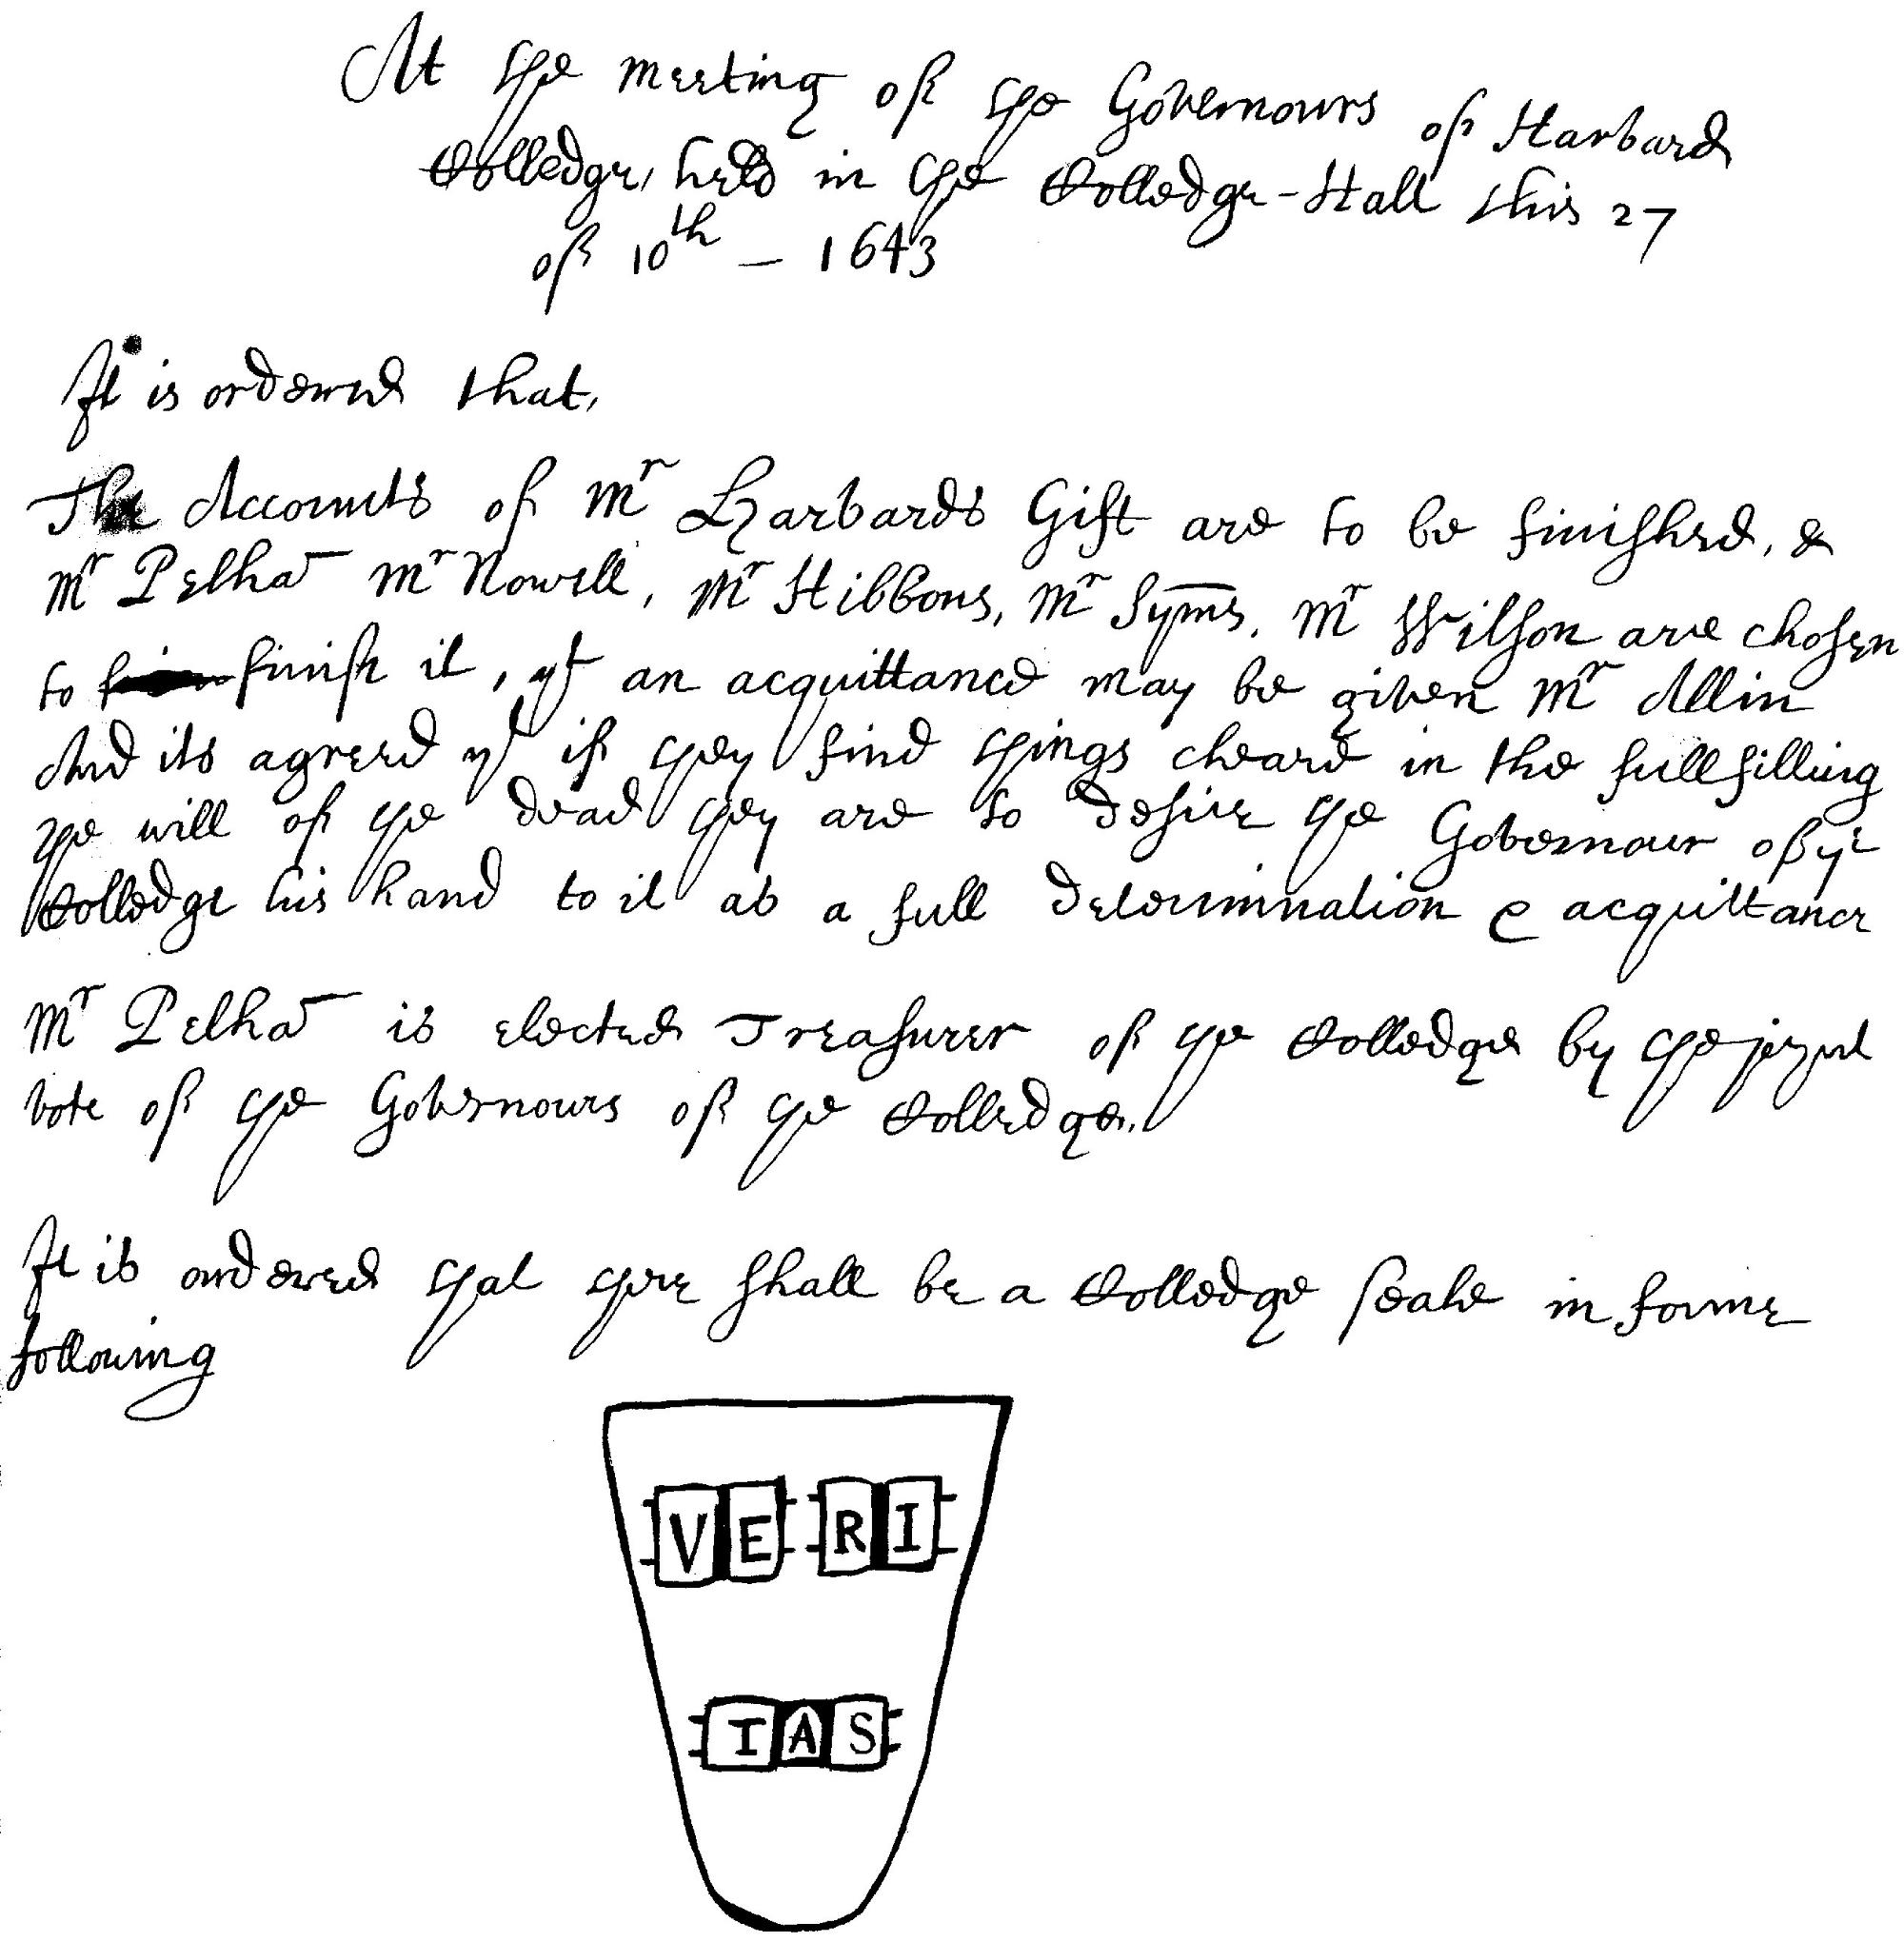 At the meeting of the Governours of Harvard
Colledge, held in the Colledge-Hall this 27
of 10th – 1643
It is ordered that,
The Accounts of Mr Harvards Gift are to be finished, &
Mr Pelhā Mr Nowell, Mr Hibbons, Mr Syms, Mr Wilson are chosen
to finish it, yt an acquittance may be given Mr Allin
And its agreed yt if they find things cleare in the fullfilling
the will of the dead they are to desire the Governour of ye
Colledge his hand to it as a full determination & acquittance
Mr Pelhā is elected Treasurer of the Colledge by the
vote of the Governours of the Colledge.
It is ordered that there shall be a Colledge seale in forme
following
VE RI
TAS